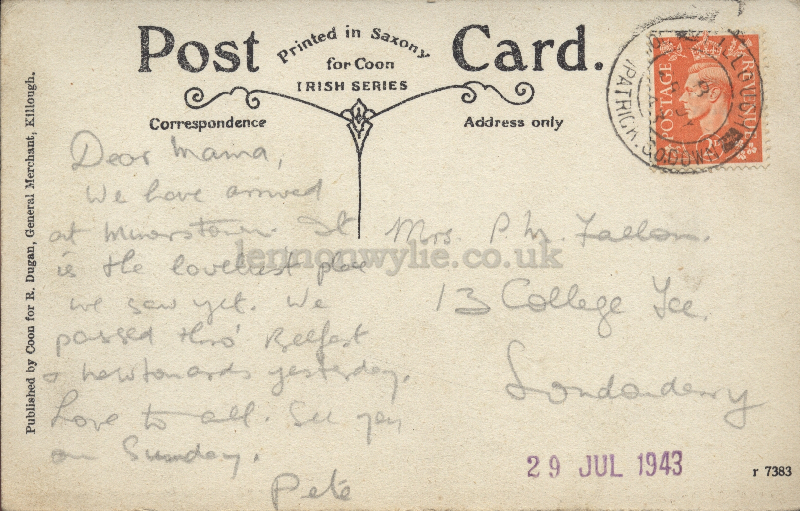 Post Card.
Printed in Saxony
for Coon
IRISH SERIES
Correspondence
Address only
Dear Mama,
We have arrived
at Minerstown. It
is the loveliest place
we saw yet. We
passed thro' Belfast
& Newtownards yesterday.
Love to all. See you
on Sunday.
Pete
Mrs. P. M. Fallon.
13 College Tce.
Londonderry
29 JUL 1943
r 7383
Published by Coon for R. Dugan, General Merchant, Killough.
POSTAGE
PATRICK, CO. DOWN
lennonwylie.co.uk